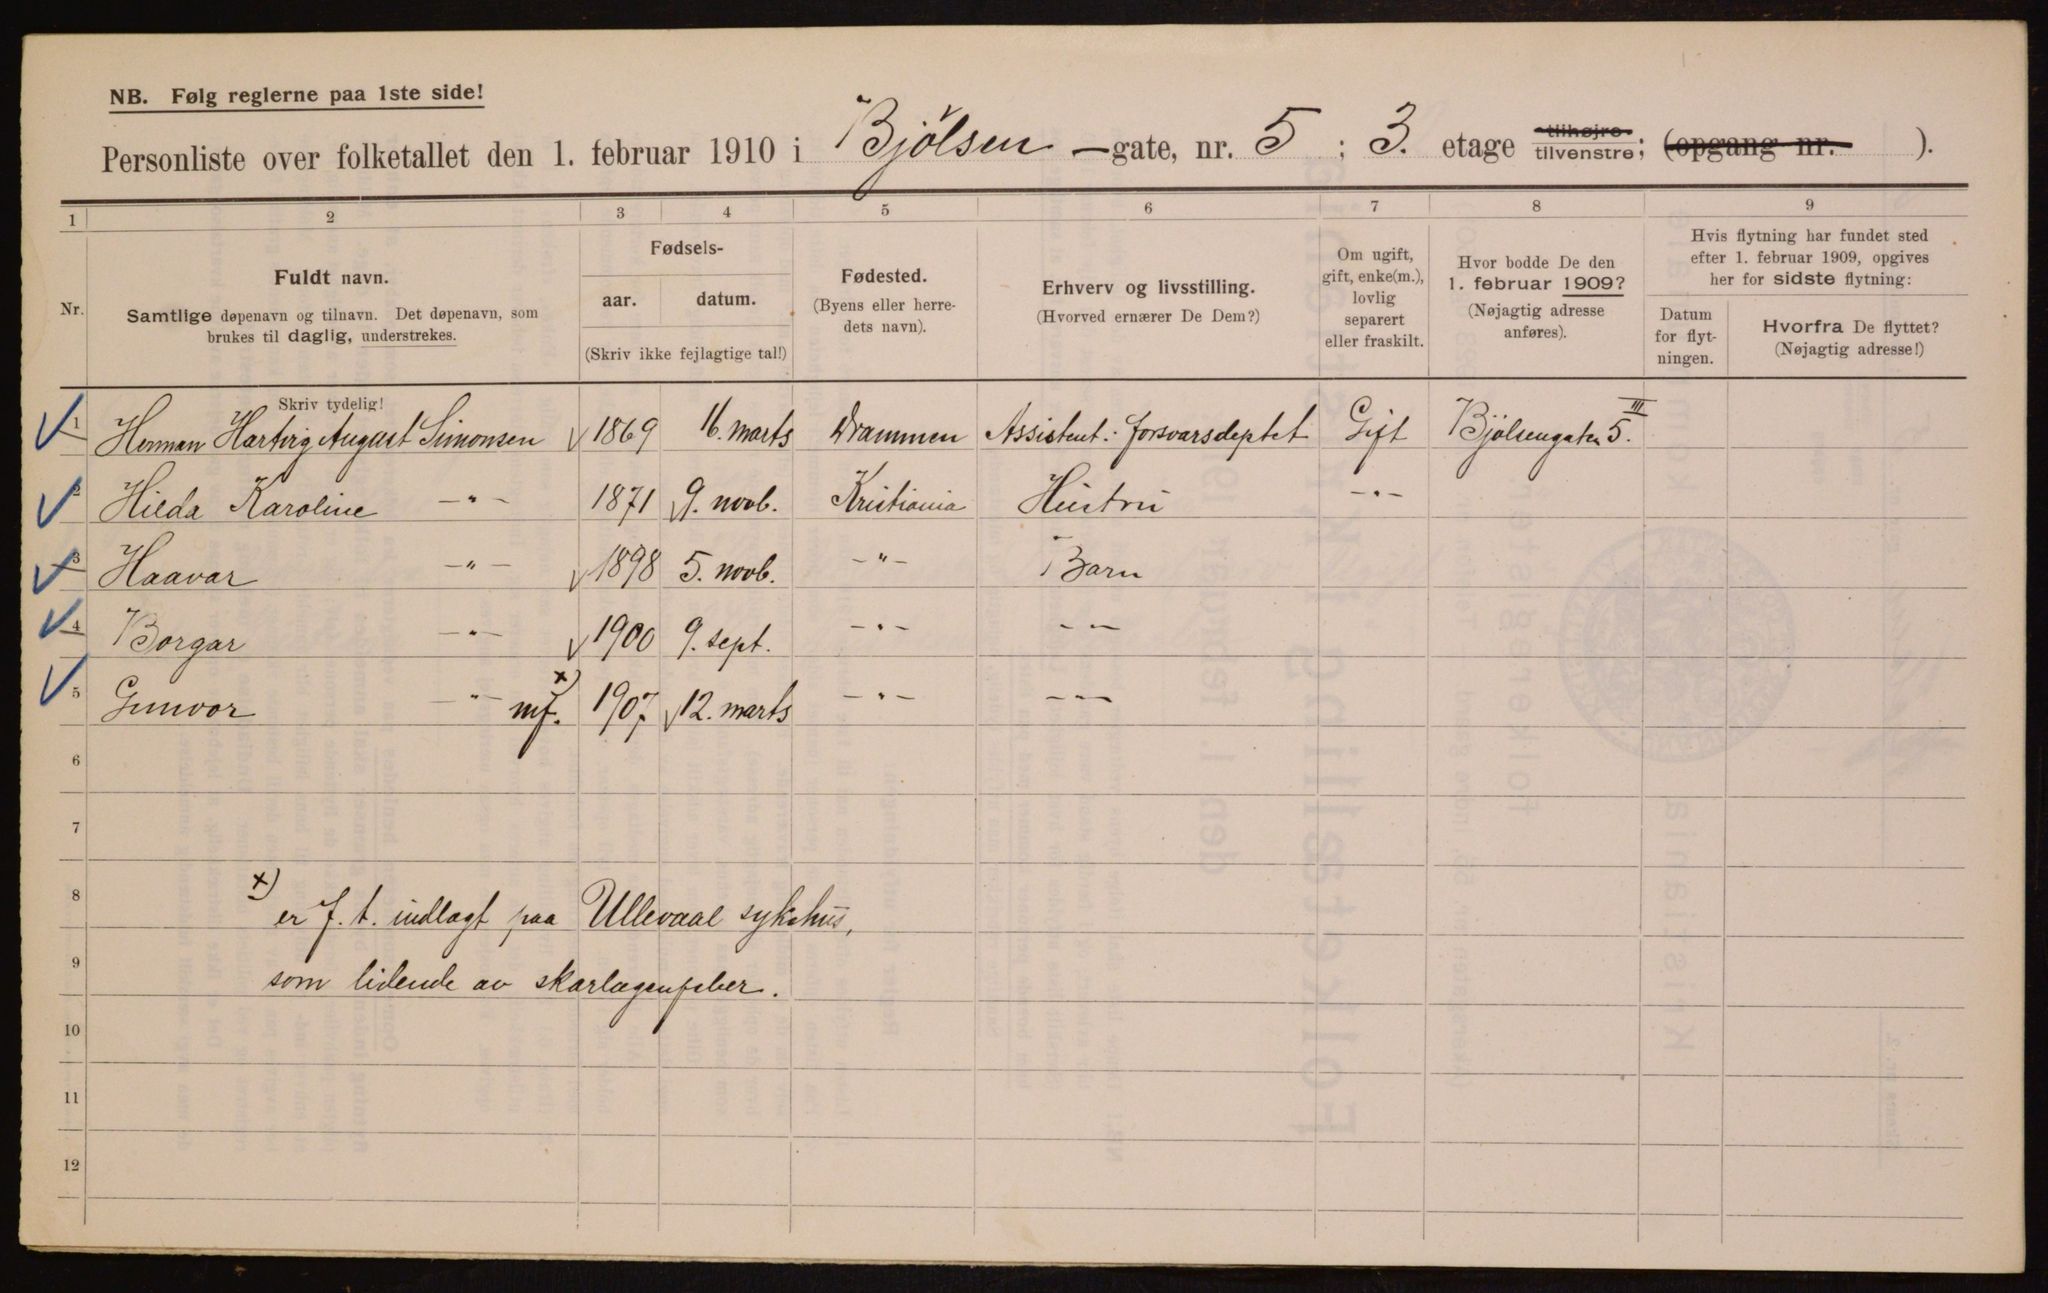 NB. Følg reglerne paa 1ste side!
Personliste over folketallet den 1. februar 1910 i Bjølsen -gate, nr. 5 ; 3. etage tilhøjre tilvenstre; (opgang nr. ).
1 2 3 4 5 6 7 8 9
Nr.
Fuldt navn.
Samtlige døpenavn og tilnavn. Det døpenavn, som
brukes til daglig, understrekes.
Skriv tydelig!
Fødsels-
aar. datum.
(Skriv ikke fejlagtige tal!)
Fødested.
(Byens eller herre-
dets navn).
Erhverv og livsstilling.
(Hvorved ernærer De Dem?)
Om ugift,
gift, enke(m.),
lovlig
separert
eller fraskilt.
Hvor bodde De den
1. februar 1909?
(Nøjagtig adresse
anføres).
Hvis flytning har fundet sted
efter 1. februar 1909, opgives
her for sidste flytning:
Datum
for flyt-
ningen.
Hvorfra De flyttet?
(Nøjagtig adresse!)
1 Herman Hartvig August Simonsen 1869 16. marts Drammen Assistent i forsvarsdeptet Gift Bjølsengaten 5. III
2 Hilda Karoline -"- 1871 9. novb. Kristiania Hustru -"-
3 Haavar -"- 1898 5. novb. -"- Barn
4 Borgar -"- 1900 9. sept. -"- -"-
5 Gunvor -"- mf. x) 1907 12. marts -"- -"-
6
7
8 x) er f. t. indlagt paa Ullevaal sykehus,
9 som lidende av skarlagensfeber.
10
11
12